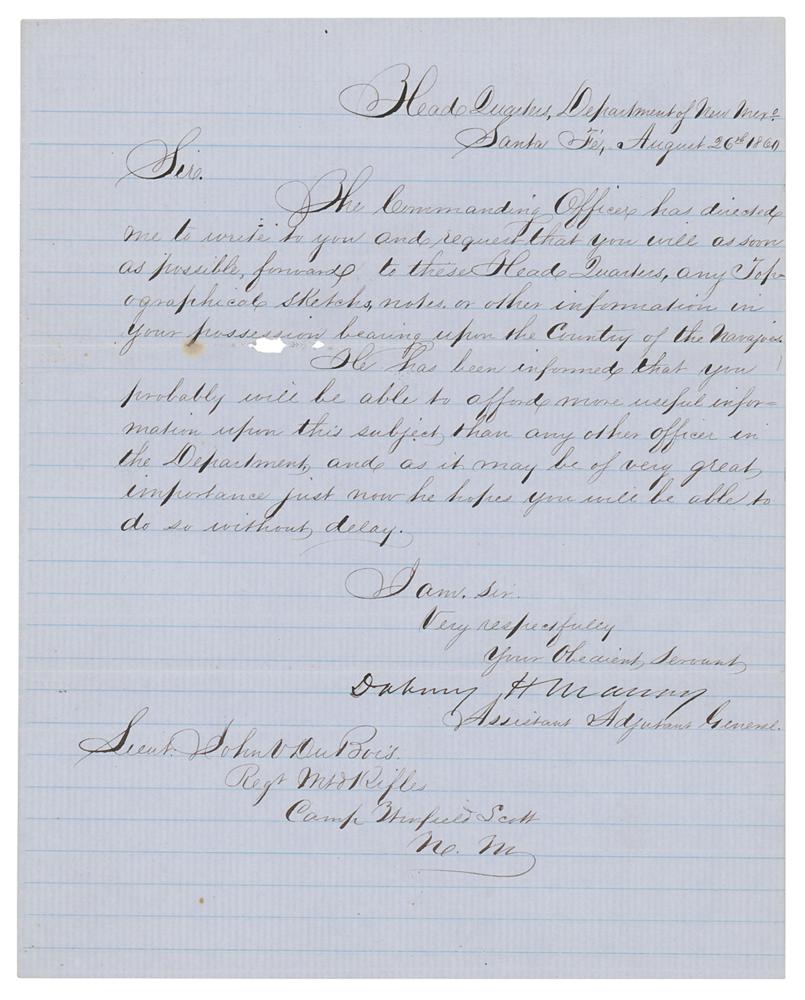 Head Quarters, Department of New Mexo.
Santa Fé, August 26th 1860
Sir.
The Commanding Officer has directed
me to write to you and request that you will as soon
as possible, forward to these Head Quarters, any Top-
ographical sketchs, notes. or other information in
your possession bearing upon the Country of the Navajoes.
He has been informed that you
probably will be able to afford more useful infor-
mation upon this subject than any other officer in
the Department, and as it may be of very great
importance just now he hopes you will be able to
do so without delay.
I am. Sir.
Very respectfully
Your Obedient Servant
Dabney H Maury
Assistant Adjutant General.
Lieut. John V DuBois.
Regt Mtd Rifles
Camp Winfield Scott
N. M